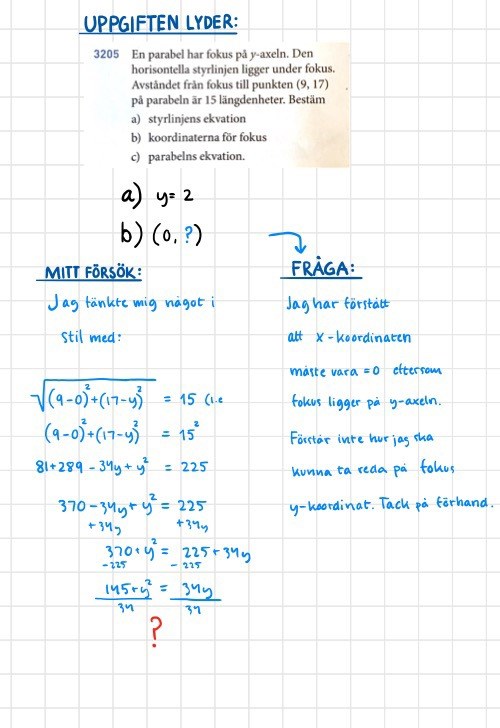 UPPGIFTEN LYDER:
3205 En parabel har fokus på y-axeln. Den
horisontella styrlinjen ligger under fokus.
Avståndet från fokus till punkten (9, 17)
på parabeln är 15 längdenheter. Bestäm
a) styrlinjens ekvation
b) koordinaterna för fokus
c) parabelns ekvation.
a) y= 2
b) (0, ?)
MITT FÖRSÖK:
Jag tänkte mig något i
stil med:
√(9-0)²+(17-y)² = 15 (i.e
(9-0)²+(17-y)² = 15²
81+289-34y+y² = 225
370-34y+y² = 225
+34y +34y
370+y² = 225+34y
-225 -225
145+y² = 34y
34 34
?
FRÅGA:
Jag har förstått
att x-koordinaten
måste vara =0 eftersom
fokus ligger på y-axeln.
Förstår inte hur jag ska
kunna ta reda på fokus
y-koordinat. Tack på förhand.